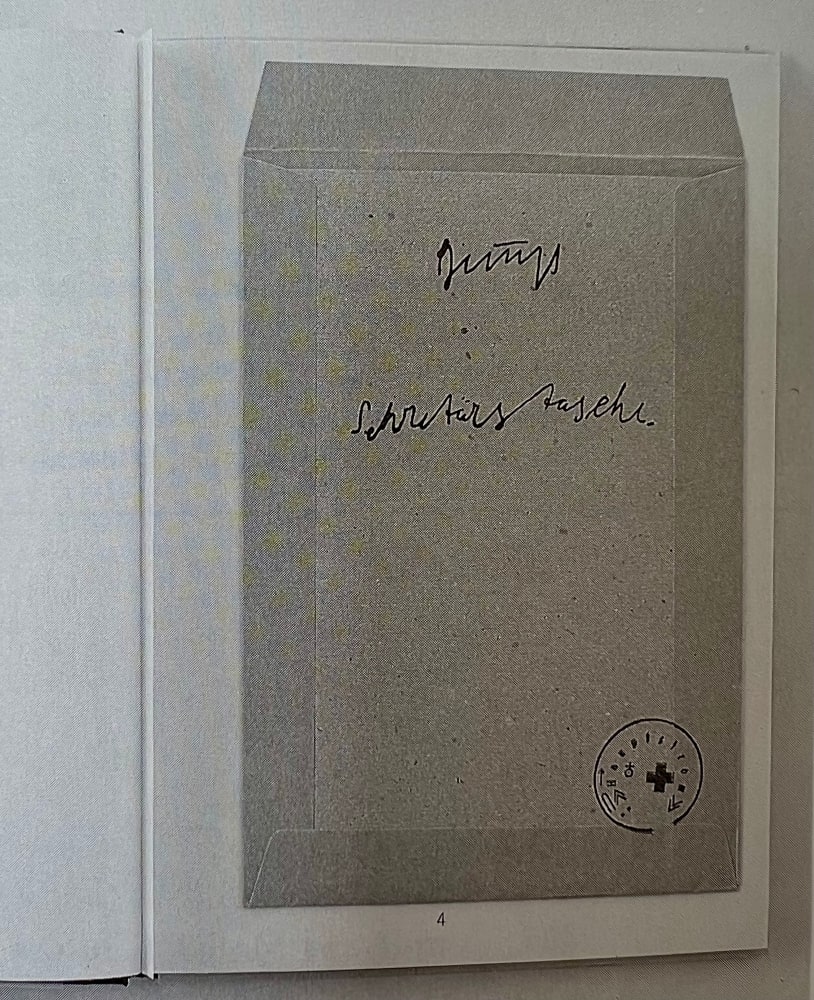 Sekretärstasche.
Hauptstrom
4